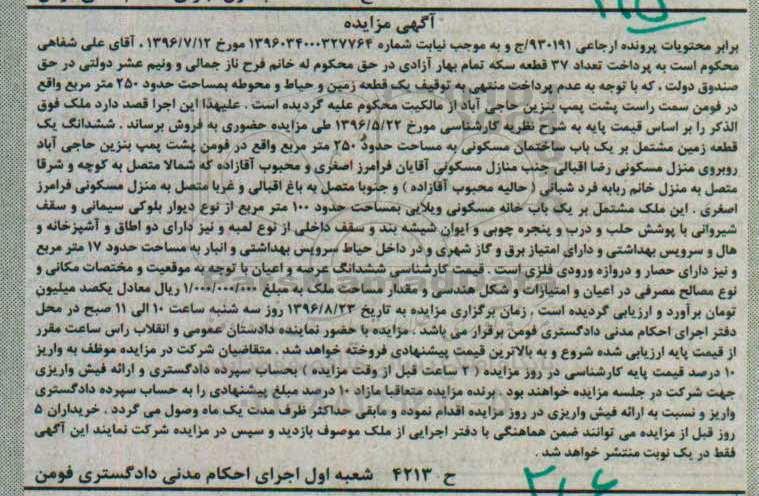 آگهی مزایده
برابر محتویات پرونده ارجاعی ۹۳۰۱۹۱/ج و به موجب نیابت شماره ۱۳۹۶۰۳۴۰۰۰۳۲۷۷۶۴ مورخ ۱۳۹۶/۷/۱۲ ، آقای علی شفاهی
محکوم است به پرداخت تعداد ۳۷ قطعه سکه تمام بهار آزادی در حق محکوم له خانم فرح ناز جمالی و ونیم عشر دولتی در حق
صندوق دولت ، که با توجه به عدم پرداخت منتهی به توقیف یک قطعه زمین و حیاط و محوطه بمساحت حدود ۲۵۰ متر مربع واقع
در فومن سمت راست پشت پمپ بنزین حاجی آباد از مالکیت محکوم علیه گردیده است . علیهذا این اجرا قصد دارد ملک فوق
الذکر را بر اساس قیمت پایه به شرح نظریه کارشناسی مورخ ۱۳۹۶/۵/۲۲ طی مزایده حضوری به فروش برساند . ششدانگ یک
قطعه زمین مشتمل بر یک باب ساختمان مسکونی به مساحت حدود ۲۵۰ متر مربع واقع در فومن پشت پمپ بنزین حاجی آباد
روبروی منزل مسکونی رضا اقبالی جنب منازل مسکونی آقایان فرامرز اصغری و محبوب آقازاده که شمالا متصل به کوچه و شرقا
متصل به منزل خانم ربابه فرد شبانی ( حالیه محبوب آقازاده ) و جنوبا متصل به باغ اقبالی و غربا متصل به منزل مسکونی فرامرز
اصغری . این ملک مشتمل بر یک باب خانه مسکونی ویلایی بمساحت حدود ۱۰۰ متر مربع از نوع دیوار بلوکی سیمانی و سقف
شیروانی با پوشش حلب و درب و پنجره چوبی و ایوان شیشه بند و سقف داخلی از نوع لمبه و نیز دارای دو اطاق و آشپزخانه و
هال و سرویس بهداشتی و دارای امتیاز برق و گاز شهری و در داخل حیاط سرویس بهداشتی و انبار به مساحت حدود ۱۷ متر مربع
و نیز دارای حصار و دروازه ورودی فلزی است . قیمت کارشناسی ششدانگ عرصه و اعیان با توجه به موقعیت و مختصات مکانی و
نوع مصالح مصرفی در اعیان و امتیازات و شکل هندسی و مقدار مساحت ملک به مبلغ ۱/۰۰۰/۰۰۰/۰۰۰ ریال معادل یکصد میلیون
تومان برآورد و ارزیابی گردیده است . زمان برگزاری مزایده به تاریخ ۱۳۹۶/۸/۲۳ روز سه شنبه ساعت ۱۰ الی ۱۱ صبح در محل
دفتر اجرای احکام مدنی دادگستری فومن برقرار می باشد . مزایده با حضور نماینده دادستان عمومی و انقلاب راس ساعت مقرر
از قیمت پایه ارزیابی شده شروع و به بالاترین قیمت پیشنهادی فروخته خواهد شد . متقاضیان شرکت در مزایده موظف به واریز
۱۰ درصد قیمت پایه کارشناسی در روز مزایده ( ۲ ساعت قبل از وقت مزایده ) بحساب سپرده دادگستری و ارائه فیش واریزی
جهت شرکت در جلسه مزایده خواهند بود . برنده مزایده متعاقبا مازاد ۱۰ درصد مبلغ پیشنهادی را به حساب سپرده دادگستری
واریز و نسبت به ارائه فیش واریزی در روز مزایده اقدام نموده و مابقی حداکثر ظرف مدت یک ماه وصول می گردد . خریداران ۵
روز قبل از مزایده می توانند ضمن هماهنگی با دفتر اجرایی از ملک موصوف بازدید و سپس در مزایده شرکت نمایند این آگهی
فقط در یک نوبت منتشر خواهد شد .
ح ۴۲۱۳ شعبه اول اجرای احکام مدنی دادگستری فومن